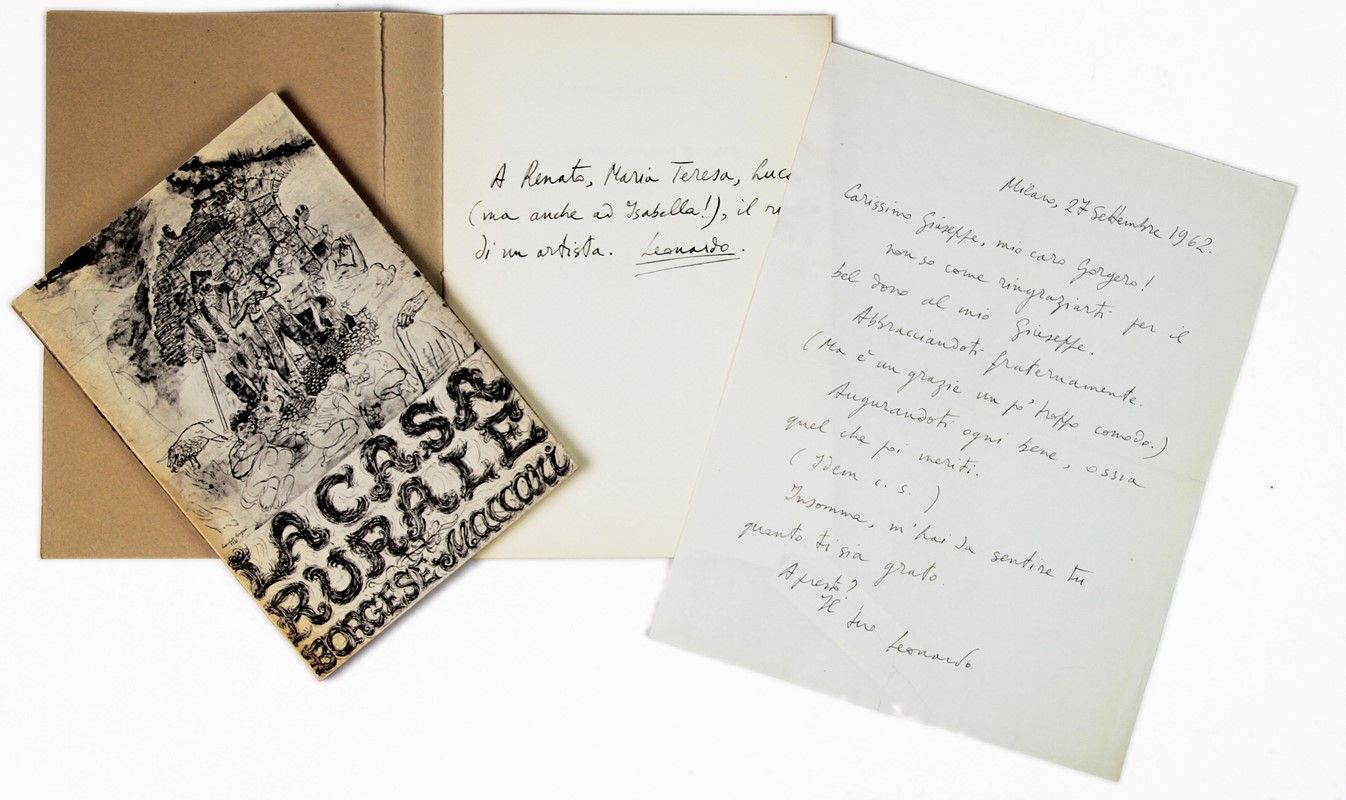 A Renato, Maria Teresa, Luca
(ma anche ad Isabella!), il ri
di un artista. Leonardo.
LA CASA
RURALE
BORGESE-Maccari
Milano, 27 Settembre 1962.
Carissimo Giuseppe, mio caro Gorgero!
non so come ringraziarti per il
bel dono al mio Giuseppe.
Abbracciandoti fraternamente.
(Ma è un grazie un po' troppo comodo.)
Augurandoti ogni bene, ossia
quel che poi meriti.
(Idem c. s. )
Insomma, m'hai da sentire tu
quanto ti sia grato.
A presto?
Il tuo Leonardo